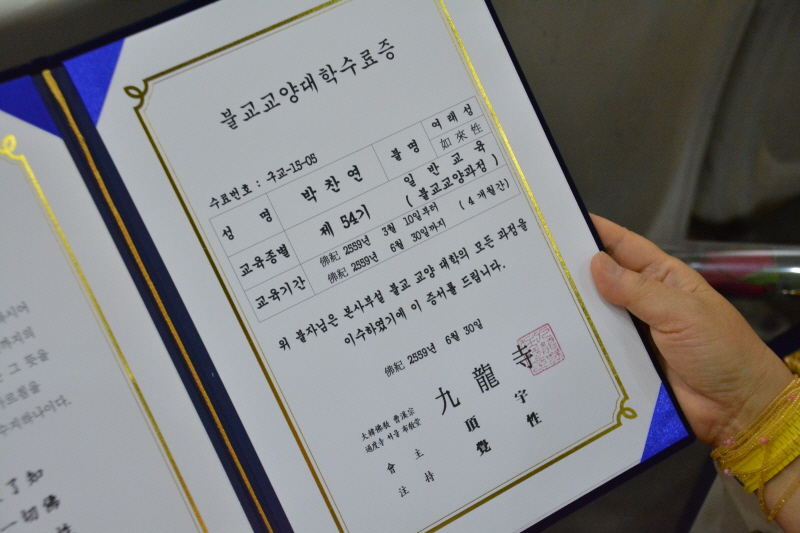 불교교양대학수료증
수료번호 : 구교-15-05
성 명 박찬연 불명 여래성 如來性
교육종별 제 54기 일반교육 (불교교양과정)
교육기간 佛紀 2559년 3월 10일부터 (4개월간)
佛紀 2559년 6월 30일까지
위 불자님은 본사부설 불교 교양 대학의 모든 과정을
이수하였기에 이 증서를 드립니다.
佛紀 2559년 6월 30일
大韓佛敎 曹溪宗
通度寺 서울 布敎堂
九龍寺
會主 頂宇
注持 覺性
그 뜻을
了知
一切佛